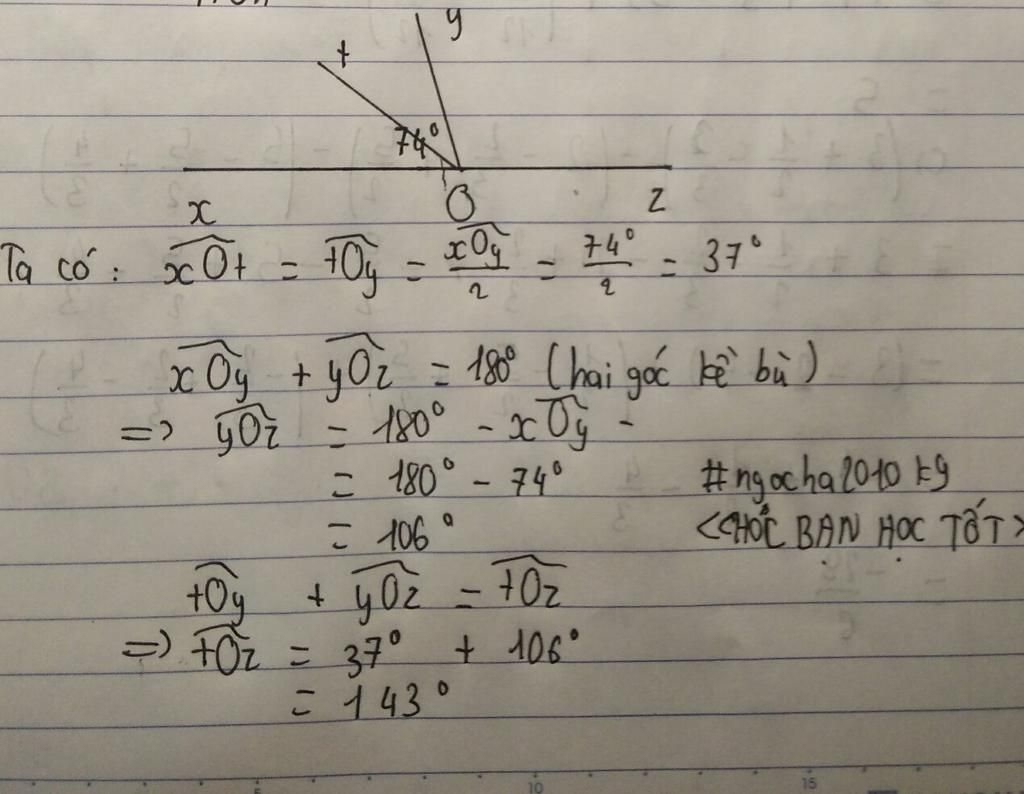 y
t
74°
x O z
Ta có: xOt = tOy = xOy/2 = 74°/2 = 37°
xOy + yOz = 180° (hai góc kề bù)
=> yOz = 180° - xOy -
= 180° - 74° #ngocha2010kg
= 106° <CHÚC BẠN HỌC TỐT>
tOy + yOz = tOz
=> tOz = 37° + 106°
= 143°
10
15